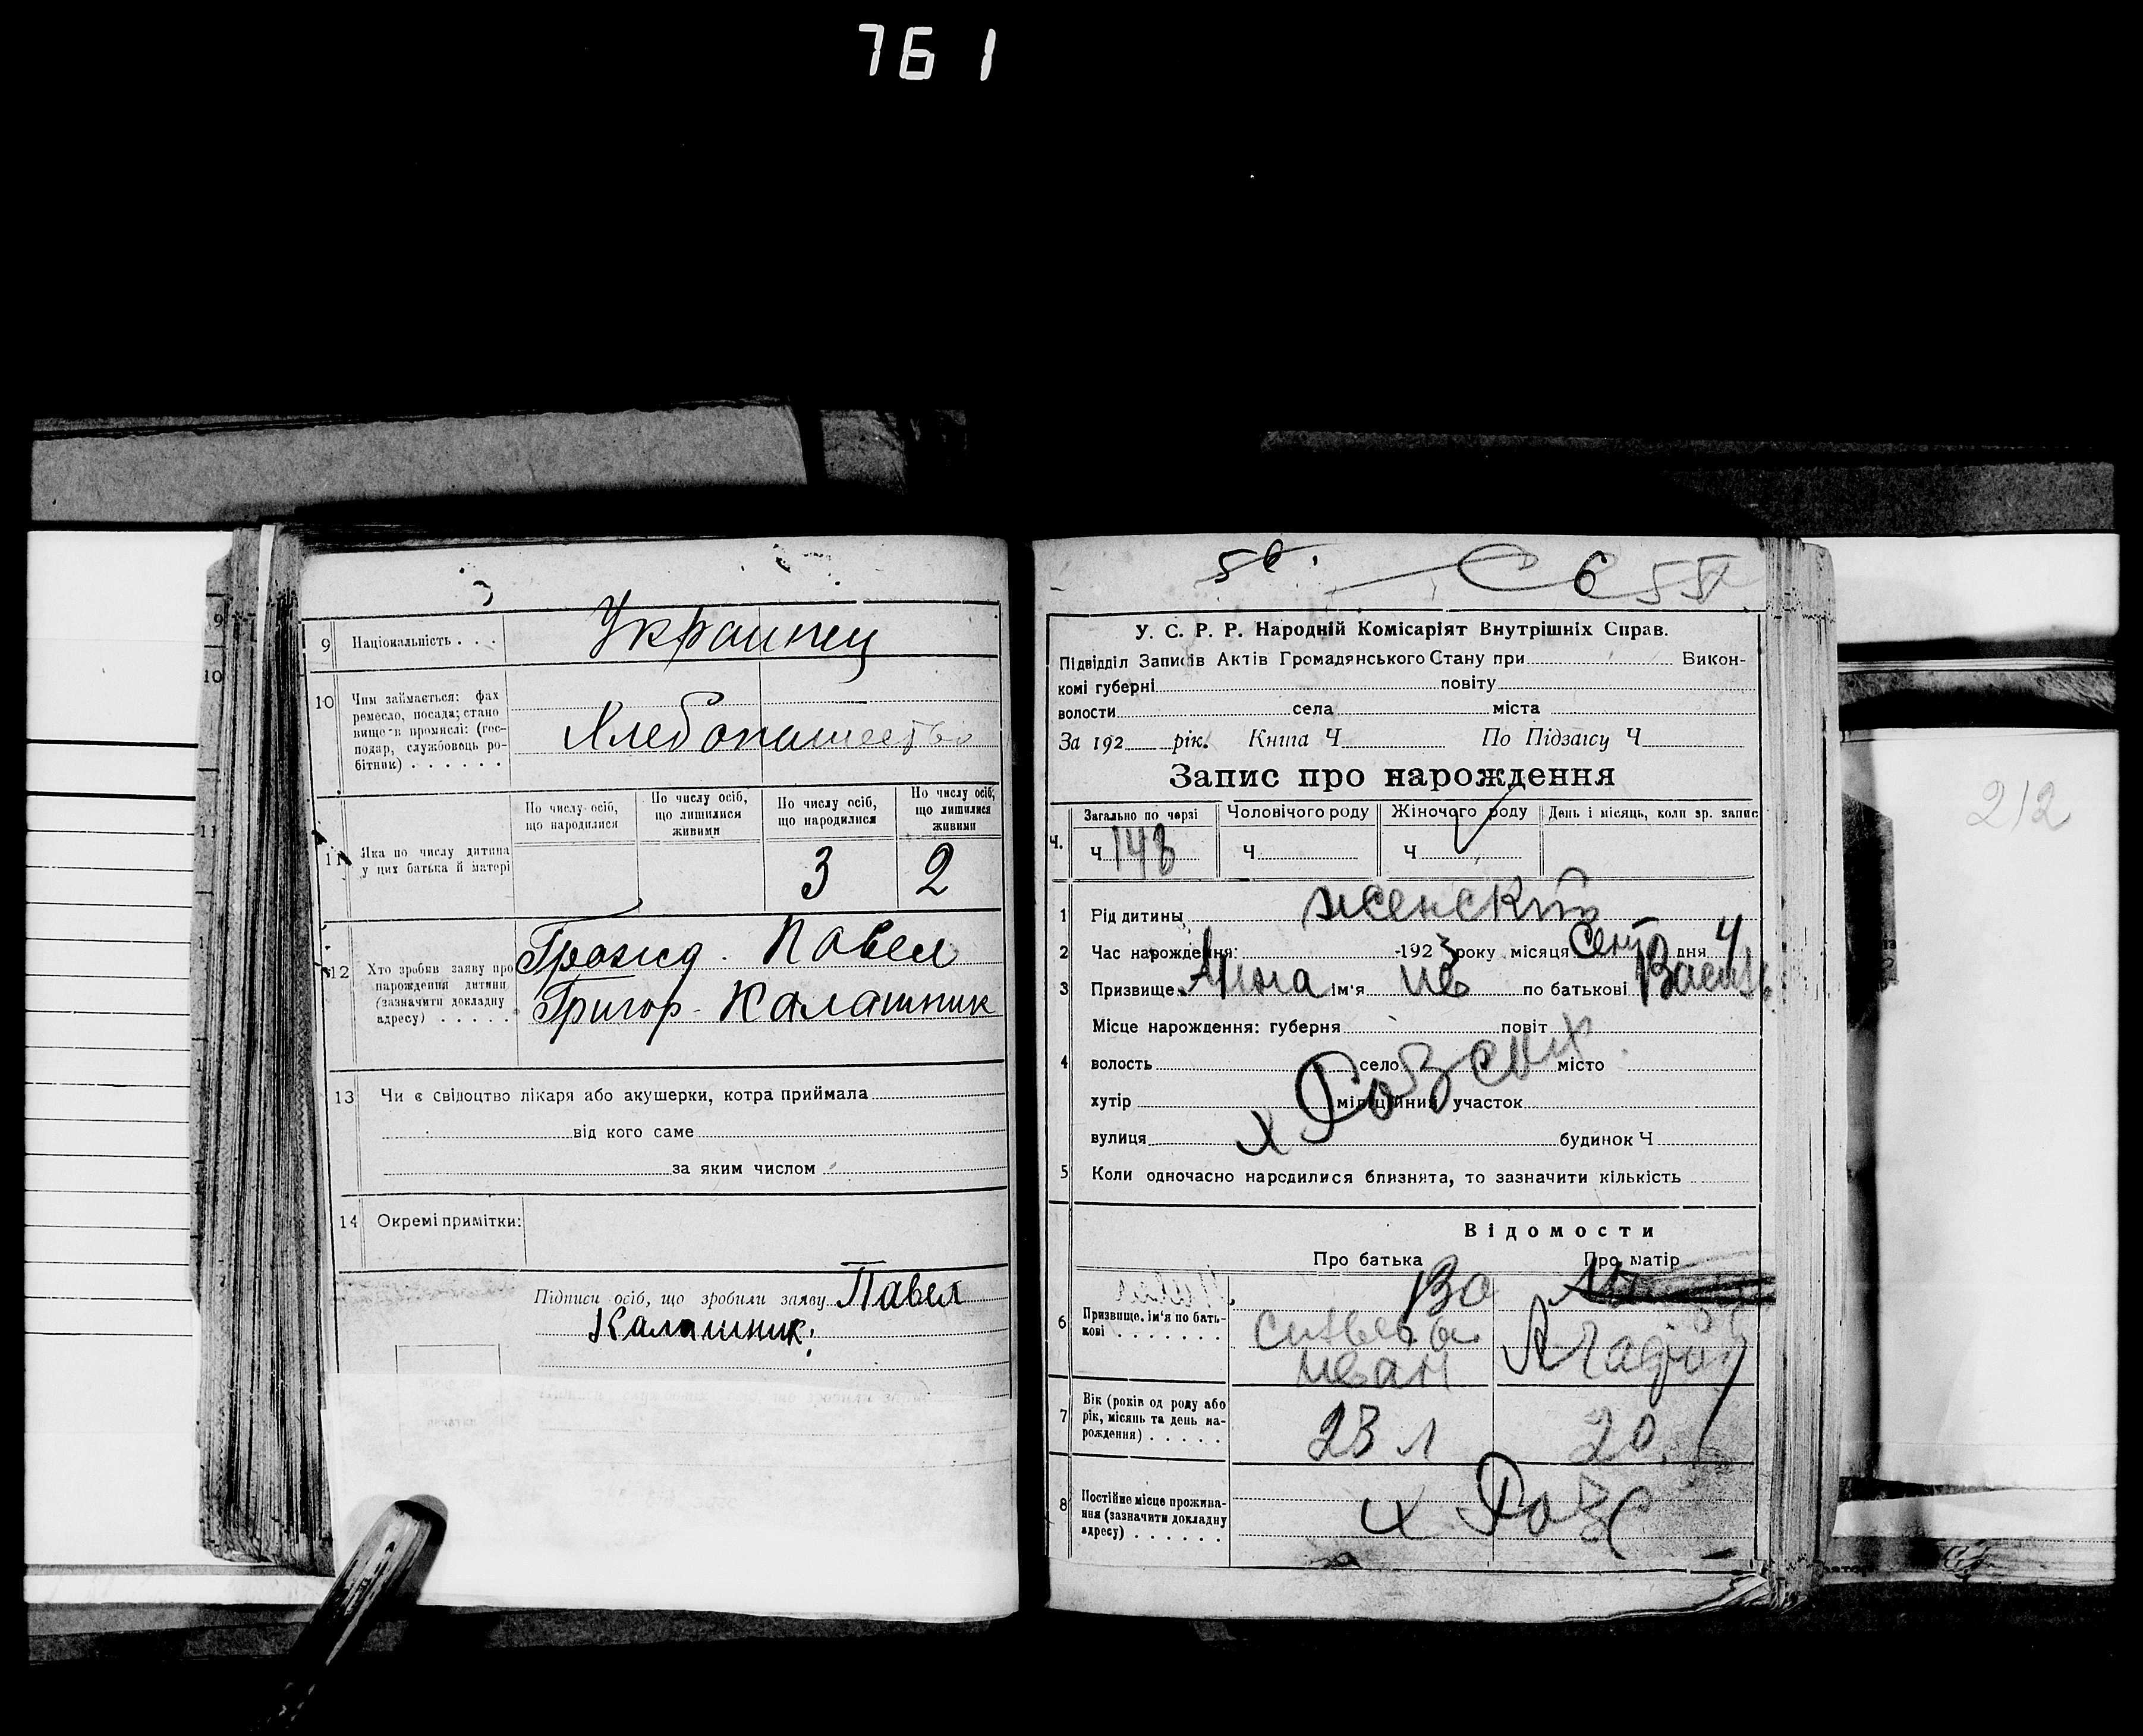 761
9 Національність . . .
Украинец
10 Чим займається: фах
ремесло, посада; стано
вище в промислі: (гос-
подар, службовець ро-
бітник) . . . . . .
Хлебопашество
По числу осіб, що народилися
По числу осіб, що лишилися живими
По числу осіб, що народилися
По числу осіб, що лишилися живими
11 Яка по числу дитина
у цих батька й матері
3 2
12 Хто зробив заяву про
нарождення дитини
(зазначити докладну
адресу) . . . . .
Гражд. Павел
Григор. Калашник
13 Чи є свідоцтво лікаря або акушерки, котра приймала
від кого саме
за яким числом
14 Окремі примітки:
Підписи осіб, що зробили заяву Павел
Калашник
У. С. Р. Р. Народній Комісаріят Внутрішніх Справ.
Підвідділ Записів Актів Громадянського Стану при Викон-
комі губерні повіту
волости села міста
За 192 рік. Книга Ч По Підзапису Ч
Запис про нарождення
Ч. Загально по черзі Чоловічого роду Жіночого роду День і місяць, коли зр. запис
Ч 148 Ч Ч
1 Рід дитины женский
2 Час нарождення: -1923 року місяця Сент дня 4
3 Призвище Анна ім'я ив по батькові
Місце нарождення: губерня повіт
4 волость село місто
хутір міліційний участок
вулиця х будинок Ч
5 Коли одночасно народилися близнята, то зазначити кількість
Відомости
Про батька Про матір
6 Призвище, ім'я по бать-
кові . . . . . . .
иван
7 Вік (років од роду або
рік, місяць та день на-
рождення) . . . . .
23 л 20
8 Постійне місце прожива-
ння (зазначити докладну
адресу) . . . . . .
х
212